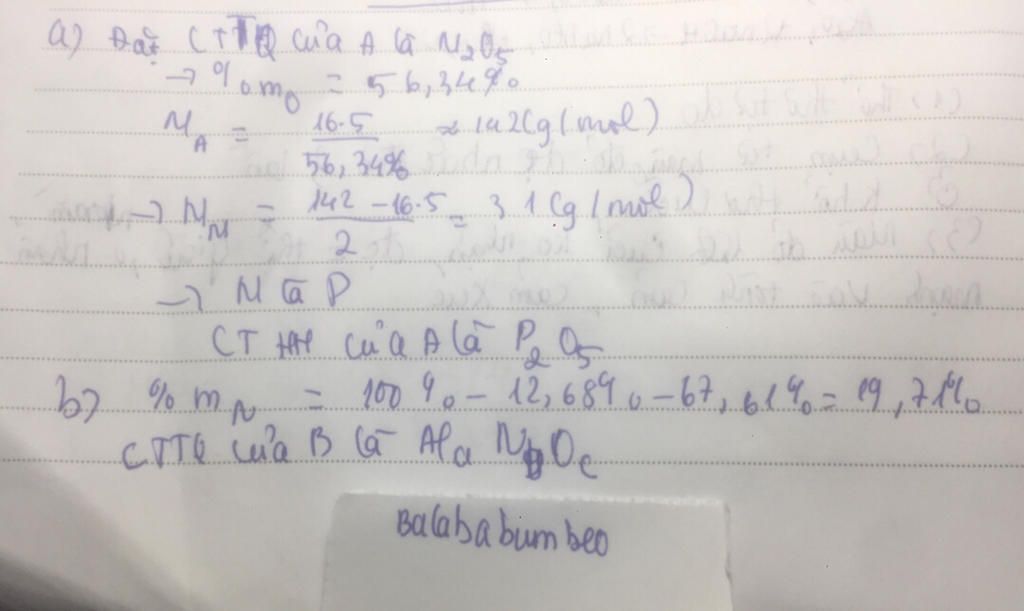 a) Đặt CTTQ của A là N₂O₅
→ %mO = 56,34%
M_A = 16.5 / 56,34% ≈ 142 (g/mol)
→ M_M = 142 - 16.5 / 2 = 31 (g/mol)
→ M là P
CTHH của A là P₂O₅
b) %m_N = 100% - 12,68% - 67,61% = 19,71%
CTTQ của B là AlaNbOc
Balababumbeo